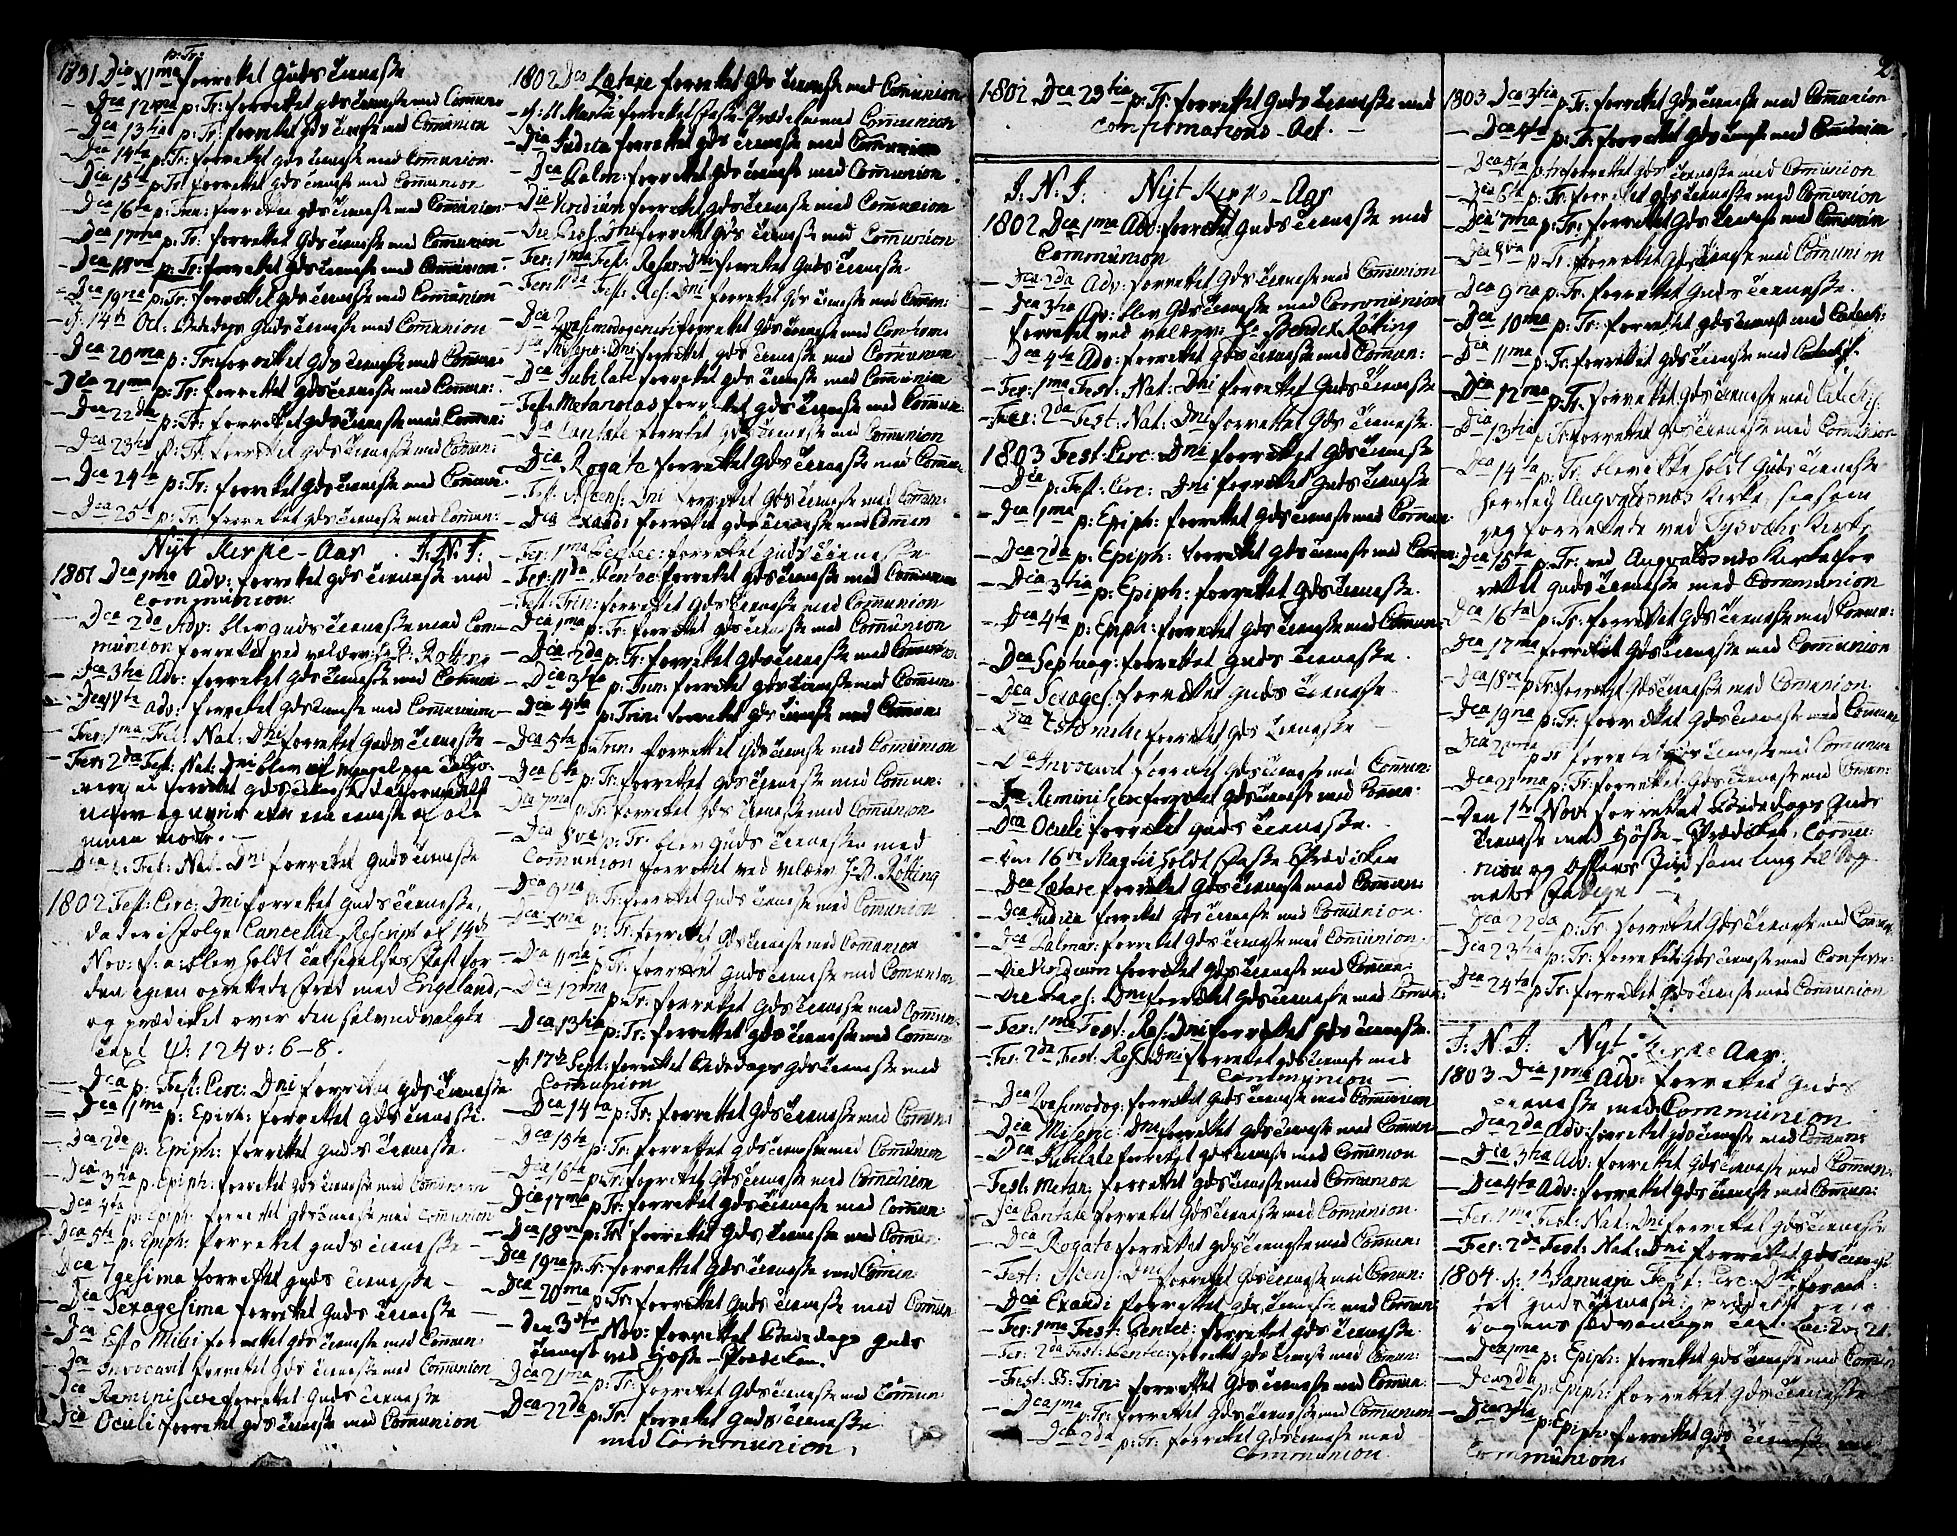 p: Tr:
1801 Dca XIma forrettet Guds Tieneste
— Dca 12ma p: Tr: forrettet gds Tieneste med Commun:
— Dca 13tia p: Tr: forrettet gds Tieneste med Com̅union
— Dca 14ta p: Tr: forrettet gds Tieneste med Com̅union.
— Dca 15ta p: Tr: forrettet gds Tieneste med Com̅union
— Dca 16ta p: Trin: forrettet gds Tieneste med Com̅union:
— Dca 17ma p: Tr: forrettet Gds Tieneste med Com̅union
— Dca 18va p: Tr: forrettet gds Tieneste med Com̅union.
— Dca 19na p: Tr: forrettet gds Tieneste med Com̅union
— d: 14th Oct: Bededags Guds Tieneste med Com̅union
— Dca 20ma p: Tr: forrettet gds Tieneste med Com̅un:
— Dca 21ma p: Tr: forrettet gds Tieneste med Com̅un:
— Dca 22da p: Tr: forrettet gds Tieneste med Com̅un:
— Dca 23tia p: Tr: forrettet gds Tieneste med Com̅un:
— Dca 24ta p: Tr: forrettet gds Tieneste med Com̅un:
— Dca 25ta p: Tr: forrettet gds Tieneste med Com̅un:
Nyt Kirke-Aar. I: N: I:
1801 Dca 1ma Adv: forrettet gds Tieneste med
Communion.
— Dca 2da Adv: blev guds Tieneste med Com-
munion forrettet ved velærv: Hr B. Rötting
— Dca 3tia Adv: forrettet gds Tieneste med Com̅un
— Dca 4ta Adv: forrettet gds Tieneste med Com̅union
— Fer: 1ma Fest: Nat: Dni forrettet guds Tieneste
— Fer: 2da Fest: Nat: Dni blev af mangel paa Tilho-
rere ei forrettet gds Tieneste
— Dca p: Fest: Nat: Dni forrettet guds Tieneste
1802 Fest: Circ: Dni forrettet guds Tieneste,
da der i følge Cancellie Rescript af 14de
Nov: f: a: blev holdt Taksigelses Fest for
den igien oprettede Fred med Engeland,
og prædiket over den selvudvalgte
Text ψ: 124 v: 6–8.
— Dca p: Fest: Circ: Dni forrettet gds Tieneste
— Dca 1ma p: Epiph: forrettet gds Tieneste.
— Dca 2da p: Epiph: forrettet guds Tieneste.
— Dca 3tia p: Epiph: forrettet gds Tieneste med Com̅union
— Dca 4ta p: Epiph: forrettet gds Tieneste med Com̅union
— Dca 5ta p: Epiph: forrettet guds Tieneste —
— Dca 7gesima forrettet guds Tieneste —
— Dca Sexagesima forrettet Guds Tieneste
— Dca Esto Mihi forrettet gds Tieneste med Com̅un:
— Dca Invocavit forrettet Gds Tieneste med Com̅union
— Dca Reminiscere forrettet Guds Tieneste
— Dca Oculi forrettet gds Tieneste med Com̅union
1802 Dca Lætare forrettet gds Tieneste med Com̅union
— f: S: Mariæ forrettet Faste-Prædiken med Com̅union
— Dca Judica forrettet gds Tieneste med Com̅union
— Dca Palm: forrettet gds Tieneste med Com̅union
— Die Viridium forrettet gds Tieneste med Com̅union
— Die Pass: Dni forrettet gds Tieneste med Com̅union
— Fer: 1ma Fest: Resur: Dni forrettet Guds Tieneste
— Fer: IIda Fest: Res: Dni forrettet gds Tieneste med Com̅un:
— Dca Quasimodogeniti forrettet gds Tieneste med Confirm:
— Dca Miseric: Dni forrettet gds Tieneste med Com̅union
— Dca Jubilate forrettet gds Tieneste med Com̅union
— Fest: Metanoias forrettet gds Tieneste med Com̅un:
— Dca Cantate forrettet gds Tieneste med Com̅union
— Dca Rogate forrettet gds Tieneste med Com̅un:
— Fest: Ascens: Dni forrettet gds Tieneste med Com̅un:
— Dca Exaudi forrettet gds Tieneste med Com̅un
— Fer: 1ma Pentec: forrettet guds Tieneste
— Fer: IIda Pentec: forrettet gds Tieneste med Com̅union
— Fest: Trin: forrettet gds Tieneste med Com̅union
— Dca 1ma p: Tr: forrettet gds Tieneste med Com̅union
— Dca 2da p: Tr: forrettet gds Tieneste med Com̅union
— Dca 3tia p: Trin: forrettet gds Tieneste med Com̅un:
— Dca 4ta p: Trin: forrettet gds Tieneste med Com̅un:
— Dca 5ta p: Trin: forrettet gds Tieneste med Com̅union
— Dca 6ta p: Tr: forrettet gds Tieneste med Com̅un:
— Dca 7ma p: Tr: forrettet gds Tieneste med Com̅union
— Dca 8va p: Tr: blev Guds Tieneste med
Communion forrettet ved velærv: H: B. Rötting
— Dca 9na p: Tr: forrettet Guds Tieneste med Com̅union
— Dca Xma p: Tr: forrettet gds Tieneste med Com̅union
— Dca 11ma p: Tr: forrettet guds Tieneste med Com̅union
— Dca 12ma p: Tr: forrettet gds Tieneste med Com̅un:
— Dca 13tia p: Tr: forrettet gds Tieneste med Com̅un:
— d: 17de Sept: forrettet Bededags gds Tieneste med
Communion
— Dca 14ta p: Tr: forrettet Gds Tieneste med Com̅un:
— Dca 15ta p: Tr: forrettet gds Tieneste med Com̅union
— Dca 16ta p: Tr: forrettet Gds Tieneste med Com̅union
— Dca 17ma p: Tr: forrettet gds Tieneste med Com̅un:
— Dca 18va p: Tr: forrettet Gds Tieneste med Com̅un:
— Dca 19na p: Tr: forrettet gds Tieneste med Com̅un:
— Dca 20ma p: Tr: forrettet Guds Tieneste med Com̅un:
— Den 3die Nov: forrettet Bededags guds
Tieneste med Høste-Prædiken.
— Dca 21ma p: Tr: forrettet Gds Tieneste med Com̅un:
— Dca 22da p: Tr: forrettet guds Tieneste
med Communion.
2.
1802 Dca 23tia p: Tr: forrettet Guds Tieneste med
Confirmations-Act. —
I. N. I. Nyt Kirke-Aar
1802 Dca 1ma Adv: forrettet Guds Tieneste med
Communion
— Dca 2da Adv: forrettet gds Tieneste med Com̅union
— Dca 3tia Adv: blev Gds Tieneste med Communion
forrettet ved velærv: Hr Bendix Rötting
— Dca 4ta Adv: forrettet gds Tieneste med Com̅un:
— Fer: 1ma Fest: Nat: Dni forrettet Guds Tieneste
— Fer: 2da Fest: Nat: Dni forrettet Gds Tieneste.
1803 Fest: Circ: Dni forrettet gds Tieneste
— Dca p: Fest: Circ: Dni forrettet Guds Tieneste
— Dca 1ma p: Epiph: forrettet gds Tieneste med Com̅un:
— Dca 2da p: Epiph: forrettet gds Tieneste med Com̅un:
— Dca 3tia p: Epiph: forrettet gds Tieneste.
— Dca 4ta p: Epiph: forrettet gds Tieneste med Com̅un:
— Dca Septuag: forrettet guds Tieneste.
— Dca Sexages: forrettet guds Tieneste
— Dca Estomihi forrettet gds Tieneste —
— Dca Invocavit forrettet gds Tieneste med Com̅un:
— Dca Reminiscere forrettet gds Tieneste med Com̅un:
— Dca Oculi forrettet guds Tieneste.
— Den 16de Martii holdt Faste-Prædiken
— Dca Lætare forrettet gds Tieneste med Com̅un:
— Dca Judica forrettet gds Tieneste med Com̅union.
— Dca Palmar: forrettet gds Tieneste med Com̅union.
— Die Viridium forrettet gds Tieneste med Com̅un:
— Die Pass: Dni forrettet Gds Tieneste med Com̅un:
— Fer: 1ma Fest: Res: Dni forrettet gds Tieneste.
— Fer: 2da Fest: Res: Dni forrettet gds Tieneste med
Communion —
— Dca Quasimodog: forrettet Guds Tieneste med Com̅union
— Dca Miseric: Dni forrettet gds Tieneste med Com̅un:
— Dca Jubilate forrettet gds Tieneste med Com̅union
— Fest: Metan: forrettet Gds Tieneste med Com̅union
— Dca Cantate forrettet Gds Tieneste med Com̅union.
— Dca Rogate forrettet gds Tieneste med Com̅un:
— Fest: Ascens: Dni forrettet gds Tieneste med Com̅un:
— Dca Exaudi forrettet gds Tieneste med Com̅un:
— Fer: 1ma Fest: Pentec: forrettet Gds Tieneste.
— Fer: 2da Fest: Pentec: forrettet gds Tieneste med Com̅un:
— Fest: S: Trin: forrettet Gds Tieneste med Com̅un:
— Dca 1ma p: Tr: forrettet Gds Tieneste med Com̅union
— Dca 2da p: Tr: forrettet gds Tieneste med
Communion.
1803 Dca 3tia p: Tr: forrettet Gds Tieneste med Com̅union
— Dca 4ta p: Tr: forrettet Gds Tieneste med Com̅union
— Dca 5ta p: Tr: forrettet gds Tieneste med Com̅union
— Dca 6ta p: Tr: forrettet gds Tieneste med Com̅union
— Dca 7ma p: Tr: forrettet Gds Tieneste med Com̅union
— Dca 8va p: Tr: forrettet Gds Tieneste med Com̅union
— Dca 9na p: Tr: forrettet Guds Tieneste.
— Dca 10ma p: Tr: forrettet gds Tieneste med Catech:
— Dca 11ma p: Tr: forrettet gds Tieneste med Catechis:
— Dca 12ma p: Tr: forrettet gds Tieneste med Catechis:
— Dca 13tia p: Tr: forrettet gds Tieneste med Com̅union
— Dca 14ta p: Tr. blev ikke holdt Guds Tieneste
her ved Augvaldsnæs Kirke, saasom
jeg forrettede ved Tysvær Kirke
— Dca 15ta p: Tr: ved Augvaldsnæs Kirke for-
rettet guds Tieneste med Communion
— Dca 16ta p: Tr: forrettet Gds Tieneste med Com̅un:
— Dca 17ma forrettet Gds Tieneste med Com̅union
— Dca 18va p: Tr: forrettet Gds Tieneste med Com̅union.
— Dca 19na p: Tr: forrettet gds Tieneste med Com̅un:
— Dca 20ma p: Tr: forrettet gds Tieneste med Com̅union
— Dca 21ma p: Tr: forrettet gds Tieneste med Com̅un:
— Den 1te Nov: forrettet Bededags Guds
Tieneste med Høste-Prædiken, Com̅u-
nion og Offens Indsamling til Sog-
nets Fattige —
— Dca 22da p: Tr: forrettet Gds Tieneste med Com̅un:
— Dca 23tia p: Tr: forrettet Gds Tieneste med Confirm:
— Dca 24ta p: Tr: forrettet Gds Tieneste med Com̅union
I: N: I: Nyt Kirke Aar.
1803 Dca 1ma Adv: forrettet Guds
Tieneste med Communion
— Dca 2da Adv: forrettet gds Tieneste med Com̅un:
— Dca 3tia Adv: forrettet Gds Tieneste med Com̅un:
— Dca 4ta Adv: forrettet Gds Tieneste med Com̅un:
— Fer: 1ma Fest: Nat: Dni forrettet gds Tieneste
— Fer: 2da Fest: Nat: Dni forrettet gds Tieneste
1804 d: 1te Januarii Fest: Circ: Dni forret-
tet guds Tieneste; prædiket over
dagens sædvanlige Text. Luc: 2. v: 21.
— Dca 1ma p: Epiph: forrettet gds Tieneste med Com̅un:
— Dca 2da p: Epiph: forrettet gds Tieneste
— Dca 3tia p: Epiph: forrettet gds Tieneste med
Communion.